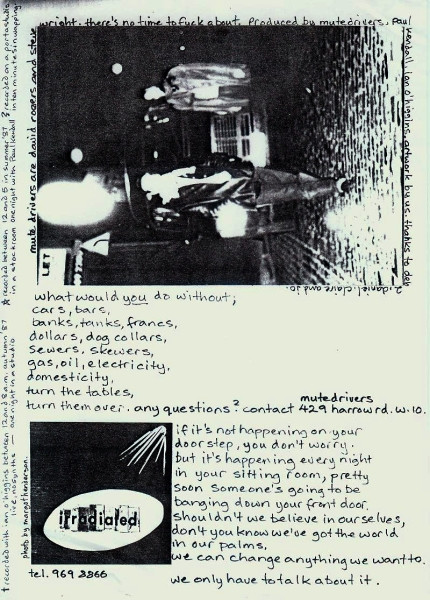 mute drivers are david rogers and steve
wright. there's no time to fuck about. Produced by mutedrivers, Paul
Kendall, Ian O'higgins. artwork by us. thanks to deb
z, daniel, claire and jo.
LET
what would you do without;
cars, bars,
banks, tanks, francs,
dollars, dog collars,
sewers, skewers,
gas, oil, electricity,
domesticity,
turn the tables,
turn them over. any questions? contact mutedrivers 429 harrow rd. w.10.
if it's not happening on your
doorstep, you don't worry.
but it's happening every night
in your sitting room, pretty
soon someone's going to be
banging down your front door.
shouldn't we believe in ourselves,
don't you know we've got the world
in our palms,
we can change anything we want to.
we only have to talk about it.
irradiated
photo by margot henderson.
tel. 969 8866
† recorded with ian o'higgins between 12 and 8 a.m. autumn '87
live, no synths — overnight in a studio
☆ recorded between 12 and 5 in summer '87
in a stockroom one night with Paul Kendall
recorded on a portastudio
in ten minutes in wapping.